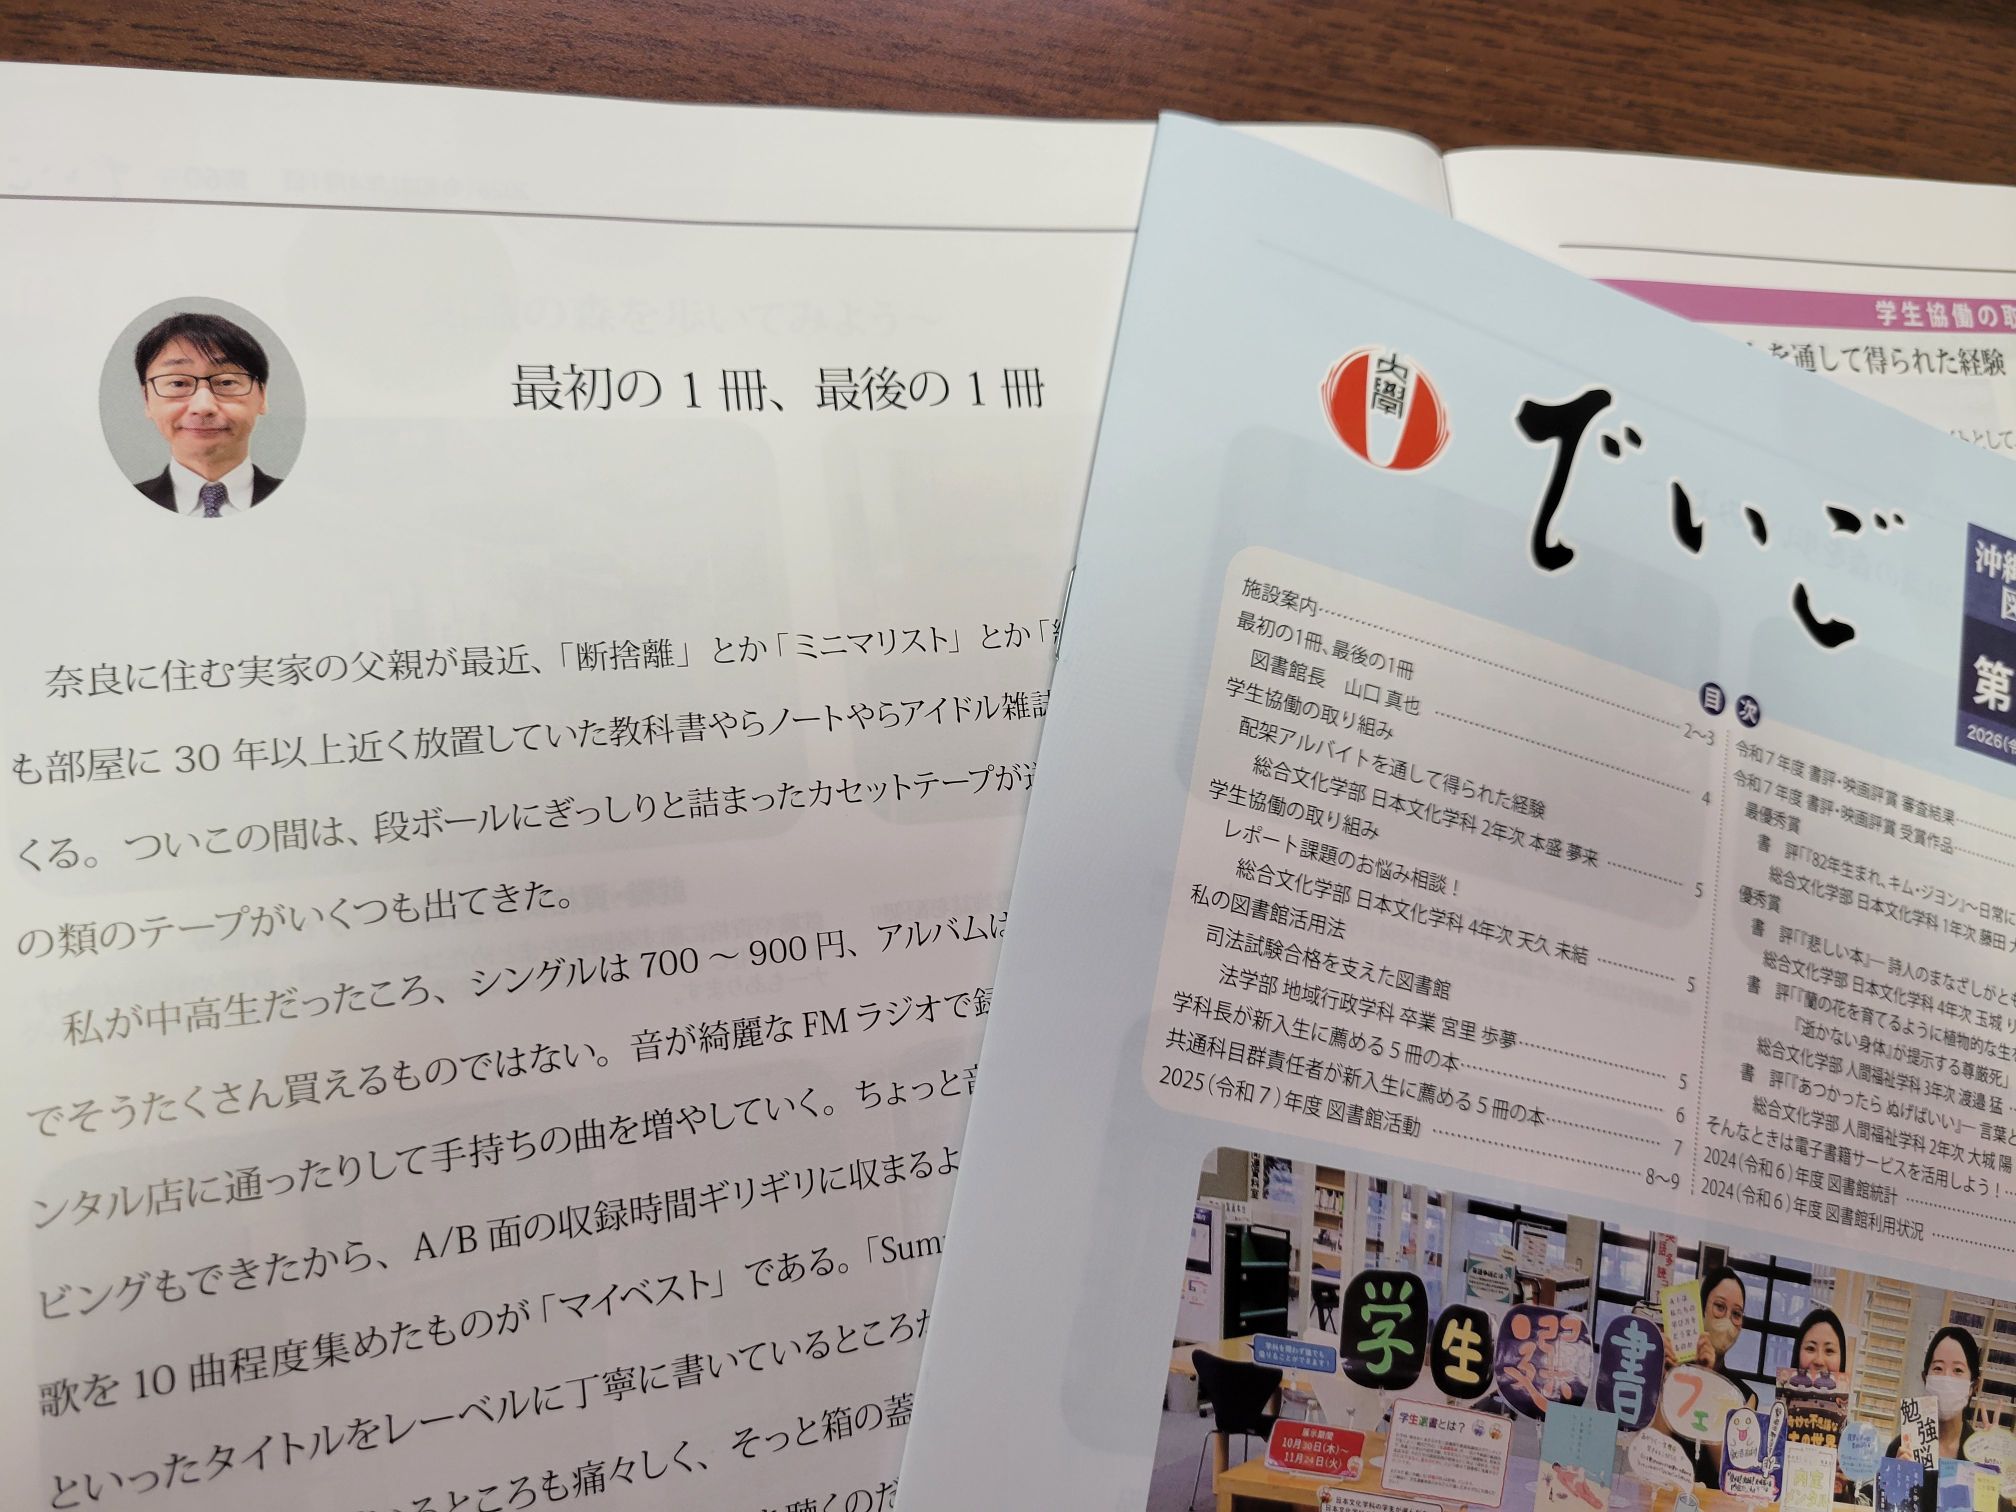 最初の1冊、最後の1冊
奈良に住む実家の父親が最近、「断捨離」とか「ミニマリスト」とか「
も部屋に 30 年以上近く放置していた教科書やらノートやらアイドル雑誌
くる。ついこの間は、段ボールにぎっしりと詰まったカセットテープが
の類のテープがいくつも出てきた。
私が中高生だったころ、シングルは 700 ～ 900 円、アルバムは
でそうたくさん買えるものではない。音が綺麗な FM ラジオで録
ンタル店に通ったりして手持ちの曲を増やしていく。ちょっと音
ビングもできたから、A/B 面の収録時間ギリギリに収まるよ
歌を 10 曲程度集めたものが「マイベスト」である。「Sum
といったタイトルをレーベルに丁寧に書いているところだ
ところも痛々しく、そっと箱の蓋
聴くのだ
学生協働の取
を通して得られた経験
大學
でいご
沖縄
図
第
2026(令
目次
施設案内
最初の1冊、最後の1冊
図書館長 山口 真也 2～3
学生協働の取り組み
配架アルバイトを通して得られた経験 4
総合文化学部 日本文化学科 2年次 本盛 夢来 5
学生協働の取り組み
レポート課題のお悩み相談！
総合文化学部 日本文化学科 4年次 天久 未結 5
私の図書館活用法
司法試験合格を支えた図書館
法学部 地域行政学科 卒業 宮里 歩夢 5
学科長が新入生に薦める５冊の本 6
共通科目群責任者が新入生に薦める５冊の本 7
2025(令和７)年度 図書館活動 8～9
令和７年度 書評・映画評賞 審査結果
令和７年度 書評・映画評賞 受賞作品
最優秀賞
書 評「『82年生まれ、キム・ジヨン』～日常に
総合文化学部 日本文化学科 1年次 藤田
優秀賞
書 評「『悲しい本』― 詩人のまなざしがとも
総合文化学部 日本文化学科 4年次 玉城 り
書 評「『蘭の花を育てるように植物的な生
『逝かない身体』が提示する尊厳死」
総合文化学部 人間福祉学科 3年次 渡邉 猛
書 評「『あつかったら ぬげばいい』― 言葉と
総合文化学部 人間福祉学科 2年次 大城 陽
そんなときは電子書籍サービスを活用しよう！
2024(令和６)年度 図書館統計
2024(令和６)年度 図書館利用状況
学生選書フェ
学生選書とは？
展示期間
10月30日(木)～
11月24日(火)
勉強脳